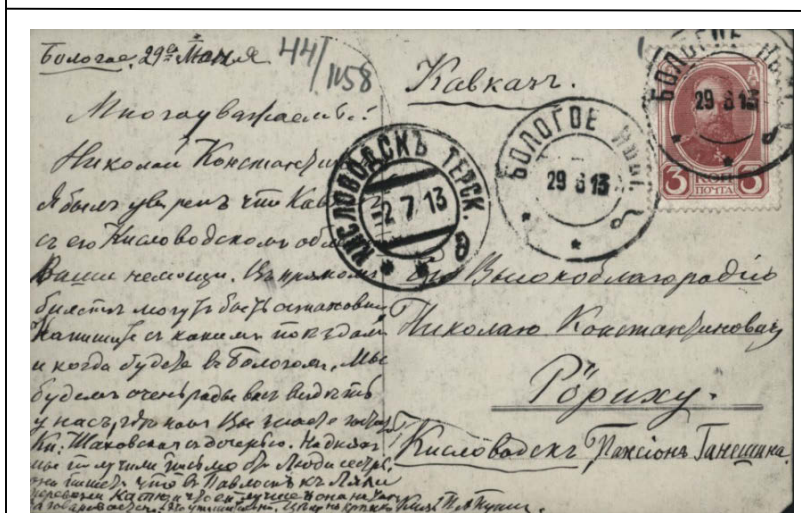 Бологое. 29го Июня
44/1158
Многоуважаемый
Николай Констант
Я былъ увѣренъ что Кав
съ его Кисловодскомъ обл
Ваши немощи. Въ прямомъ
билетѣ могутъ быть остановки
Напишите съ какимъ поѣздомъ
и когда будете въ Бологомъ, Мы
будемъ очень рады васъ видѣть
у насъ, гдѣ какъ Вы знаете
Кн. Шаховская съ дочерью. На дняхъ
мы получили письмо отъ Люди сестры,
она пишетъ что въ Павловскъ къ Ляли
перевезли
Кавказъ.
КИСЛОВОДСКЪ ТЕРСК.
-2 7 13
БОЛОГОЕ НОВГ.
29 6 13
БОЛОГОЕ НОВГ.
29 6 13
3 КОП 3
ПОЧТА
Его Высокоблагородію
Николаю Константиновичу
Рёриху.
Кисловодскъ Пансіонъ Ганешина